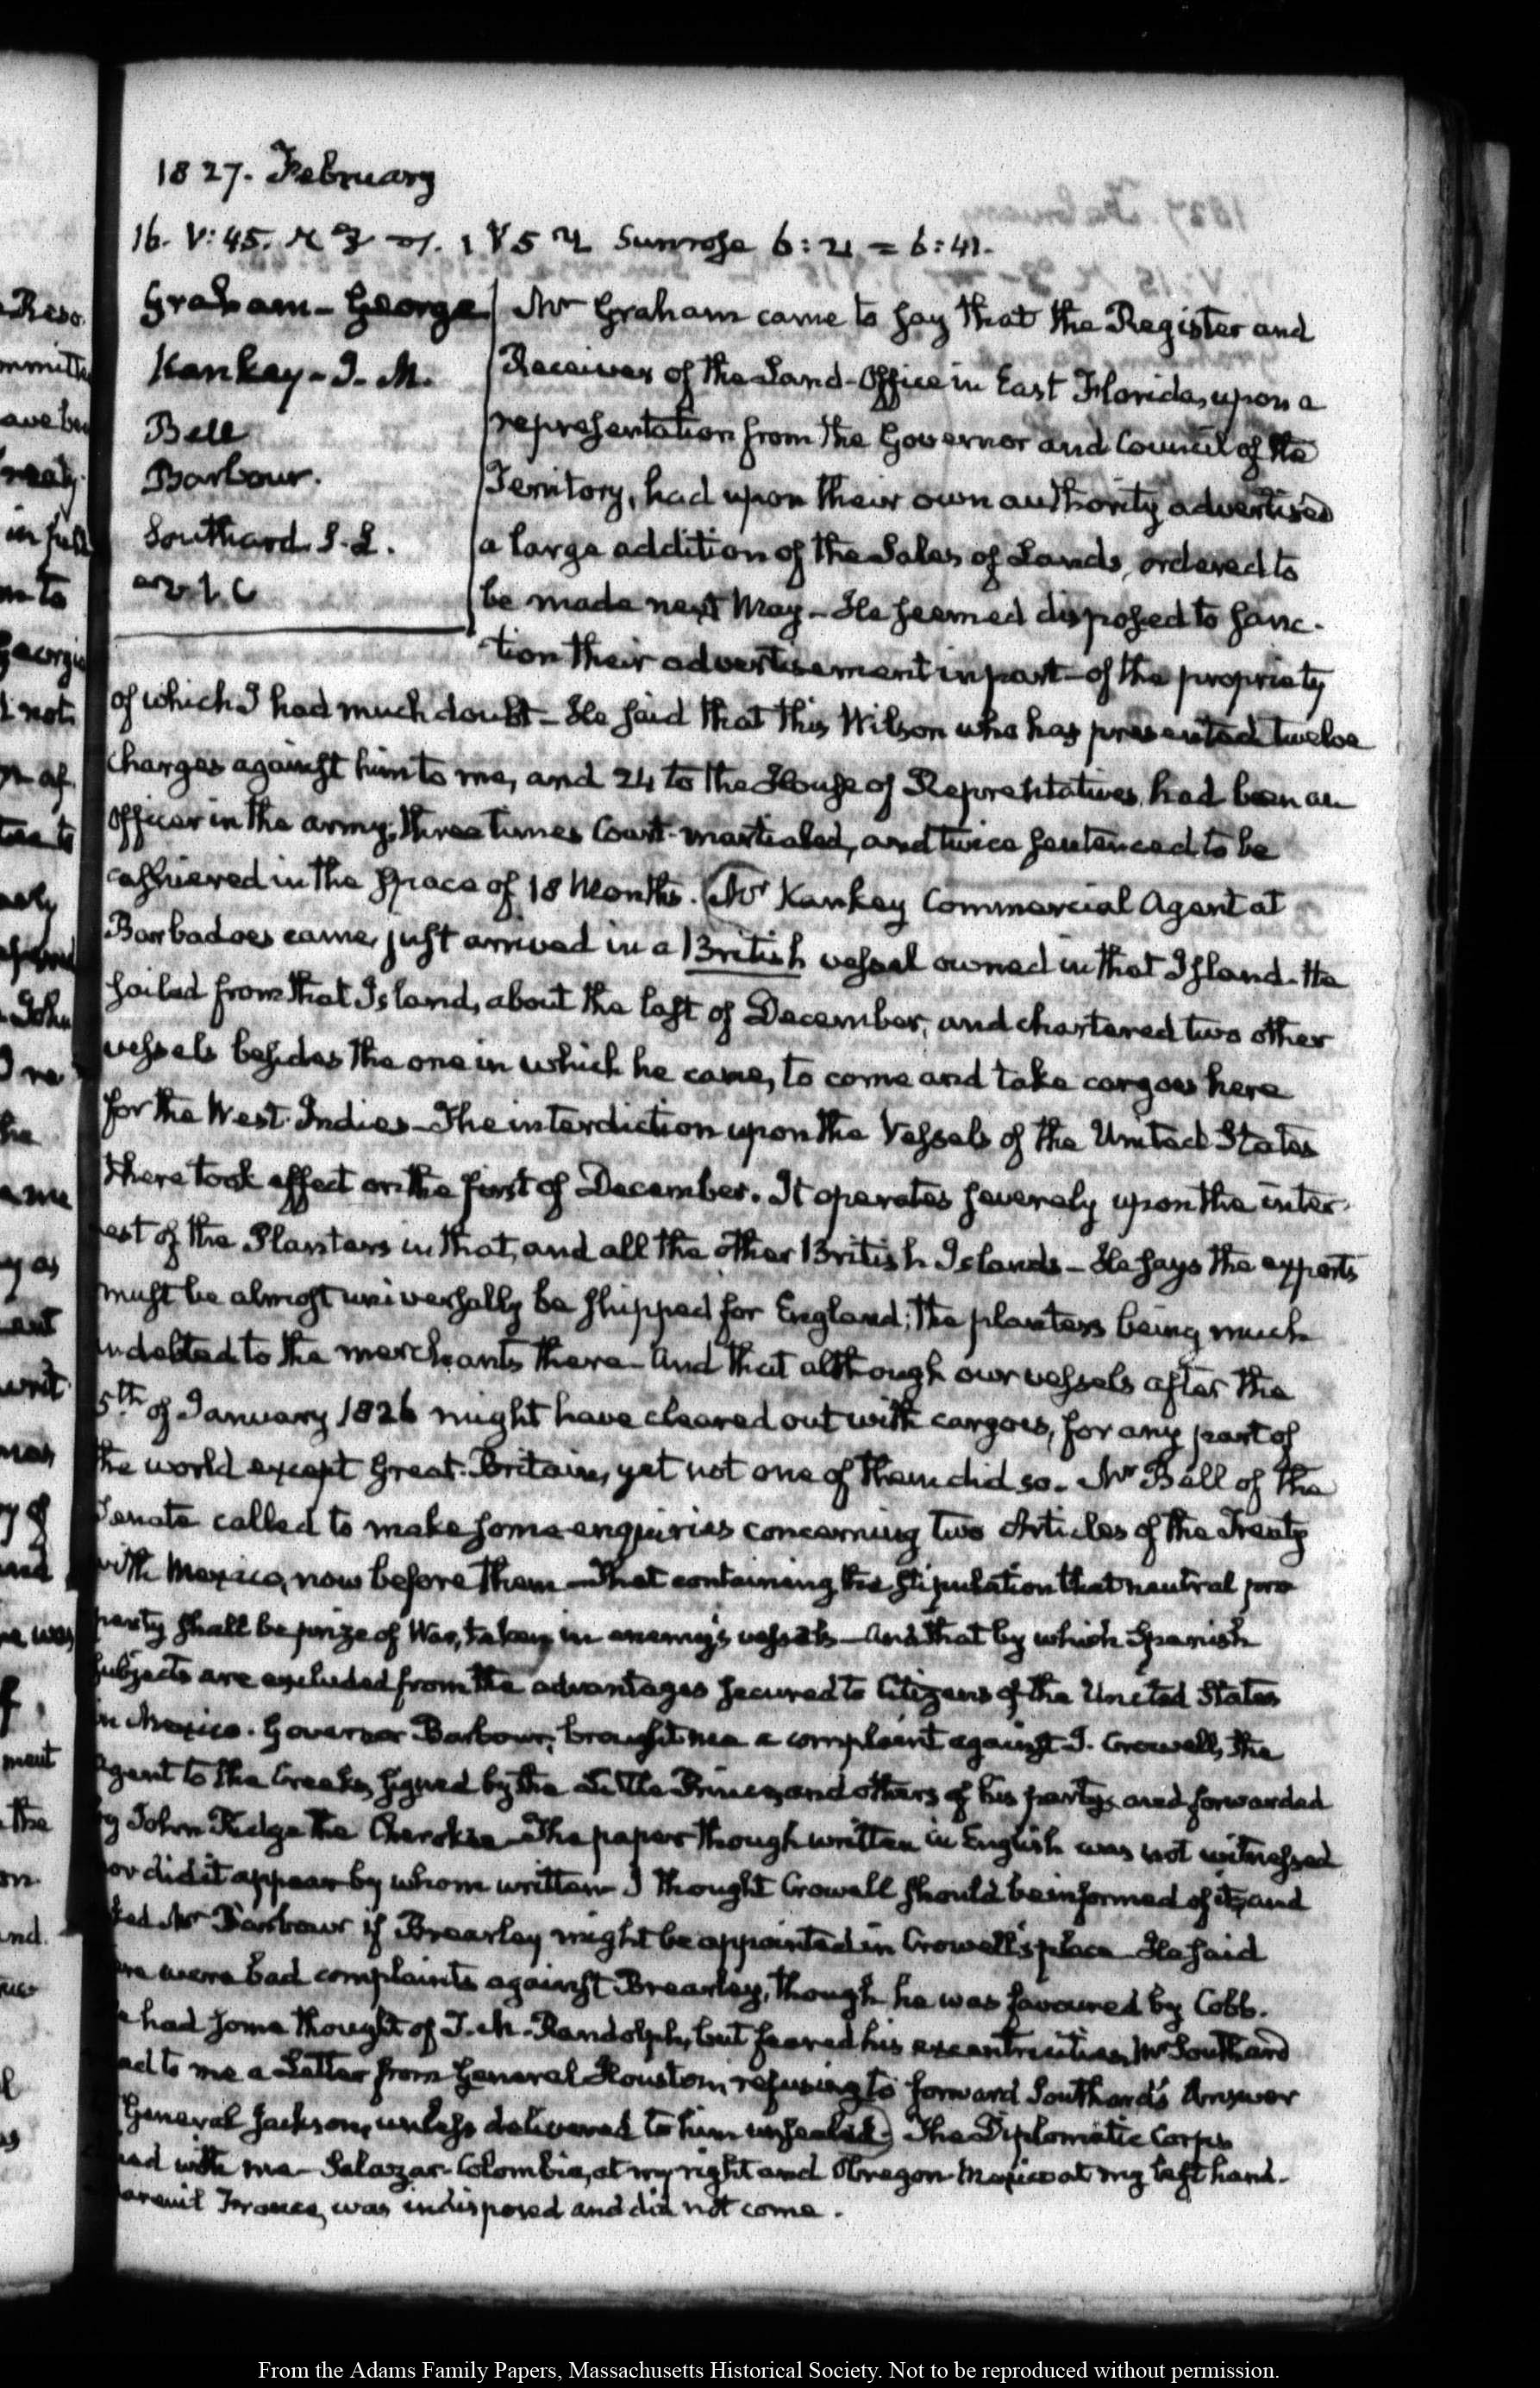 1827. February
16. V:45. Sunrose 6:21 = 6:41.
Graham - George
Kankey - J. M.
Bell
Barbour.
Southard S. L.
Mr Graham came to say that the Register and
Receiver of the Land-Office in East Florida, upon a
representation from the Governor and Council of the
Territory, had upon their own authority advertised
a large addition of the Sales of Lands, ordered to
be made next May - He seemed disposed to sanc-
tion their advertisement in part - of the propriety
of which I had much doubt - He said that this Wilson who has presented twelve
charges against him to me, and 24 to the House of Represtatives, had been an
Officer in the army, three times Court-martialed, and twice sentenced to be
cashiered in the space of 18 Months. Mr Kankey Commercial Agent at
Barbadoes came, just arrived in a British vessel owned in that Island. He
sailed from that Island, about the last of December, and chartered two other
vessels besides the one in which he came, to come and take cargoes here
for the West-Indies - The interdiction upon the Vessels of the United States
there took effect on the first of December. It operates severely upon the inter-
est of the Planters in that, and all the other British Islands - He says the exports
must be almost universally be shipped for England; the planters being much
indebted to the merchants there - And that although our vessels after the
5th of January 1826 might have cleared out with cargoes, for any part of
the world except Great-Britain, yet not one of them did so. Mr Bell of the
Senate called to make some enquiries concerning two Articles of the Treaty
with Mexico, now before them - That containing the stipulation that neutral pro
perty shall be prize of War, taken in enemy's vessels - And that by which Spanish
subjects are excluded from the advantages secured to Citizens of the United States
in Mexico. Governor Barbour, brought me a complaint against J. Crowell, the
Agent to the Creeks, signed by the Little Prince, and others of his party, and forwarded
by John Ridge the Cherokee - The paper though written in English was not witnessed
nor did it appear by whom written - I thought Crowell should be informed of it, and
ked Mr Barbour if Brearley might be appointed in Crowell's place - He said
re were bad complaints against Brearley, though he was favoured by Cobb.
e had some thought of T. M. Randolph, but feared his excentricities, Mr Southard
ad to me a Letter from General Houston, refusing to forward Southard's Answer
General Jackson, unless delivered to him unsealed. The Diplomatic Corps
ned with me - Salazar - Colombia, at my right and Obregon - Mexico at my left hand.
areuil France, was indisposed and did not come.
From the Adams Family Papers, Massachusetts Historical Society. Not to be reproduced without permission.